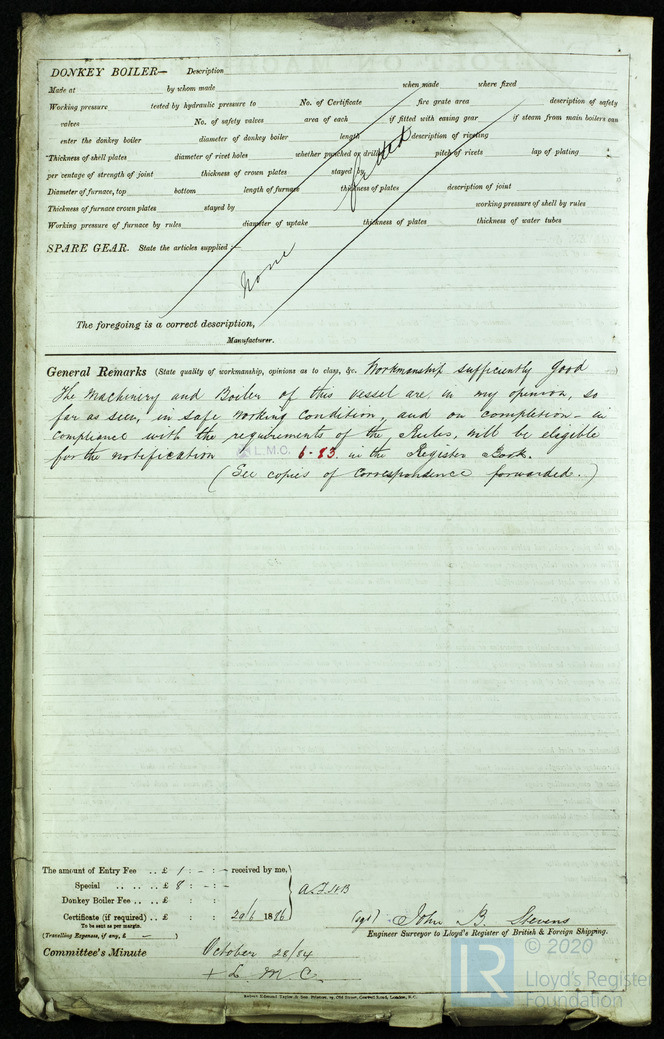 DONKEY BOILER— Description
Made at by whom made when made where fixed
Working pressure tested by hydraulic pressure to No. of Certificate fire grate area description of safety
valves No. of safety valves area of each if fitted with easing gear if steam from main boilers can
enter the donkey boiler diameter of donkey boiler length description of riveting
Thickness of shell plates diameter of rivet holes whether punched or drilled pitch of rivets lap of plating
per centage of strength of joint thickness of crown plates stayed by
Diameter of furnace, top bottom length of furnace thickness of plates description of joint
Thickness of furnace crown plates stayed by working pressure of shell by rules
Working pressure of furnace by rules diameter of uptake thickness of plates thickness of water tubes
fitted
SPARE GEAR. State the articles supplied :—
None
The foregoing is a correct description,
Manufacturer.
General Remarks (State quality of workmanship, opinions as to class, &c. Workmanship sufficiently good
The Machinery and Boiler of this vessel are in my opinion, so
far as seen, in safe working condition, and on completion - in
compliance with the requirements of the Rules, will be eligible
for the notification L.M.C. 6-83 in the Register Book.
(See copies of correspondence forwarded.)
The amount of Entry Fee .. £ 1 : - : - received by me,
Special .. .. .. £ 8 : - : -
Donkey Boiler Fee .. .. £ : :
Certificate (if required) .. £ : : 29/6 1886
To be sent as per margin.
(Travelling Expenses, if any, £ — )
(sgd) John B. Stevens
Engineer Surveyor to Lloyd's Register of British & Foreign Shipping.
Committee's Minute October 28/84
+ L M C
© 2020
LR Lloyd's Register
Foundation